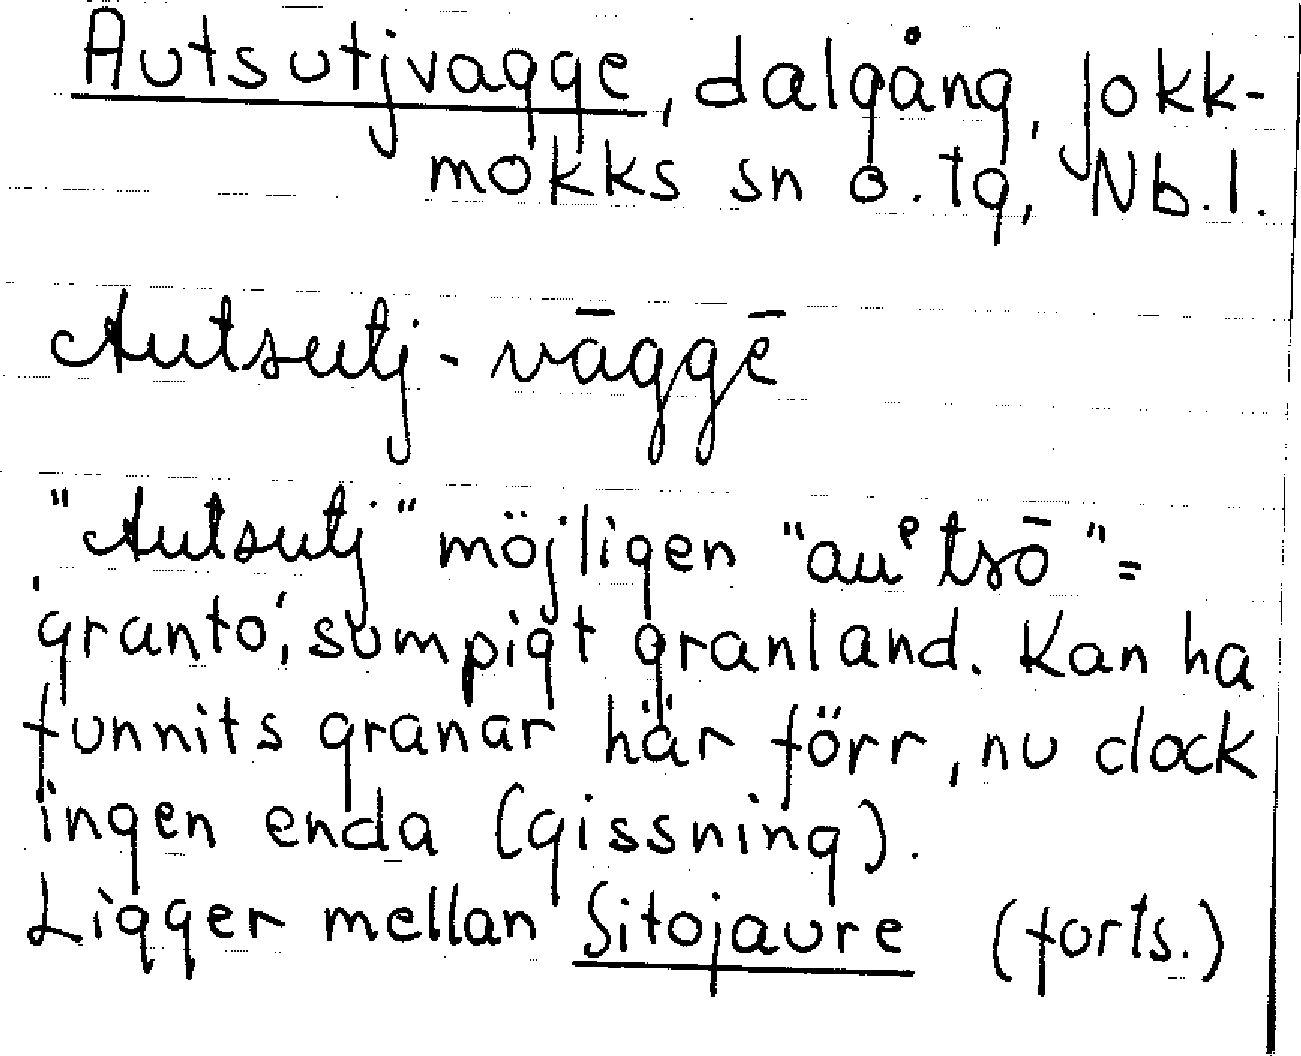 Autsutjvagge, dalgång, Jokk-
mokks sn o. tg, Nb. l.
Autsutj-vāggē
"Autsutj" möjligen "auᵉtsō" =
'grantö', sumpigt granland. Kan ha
funnits granar här förr, nu dock
ingen enda (gissning).
Ligger mellan Sitojaure (forts.)